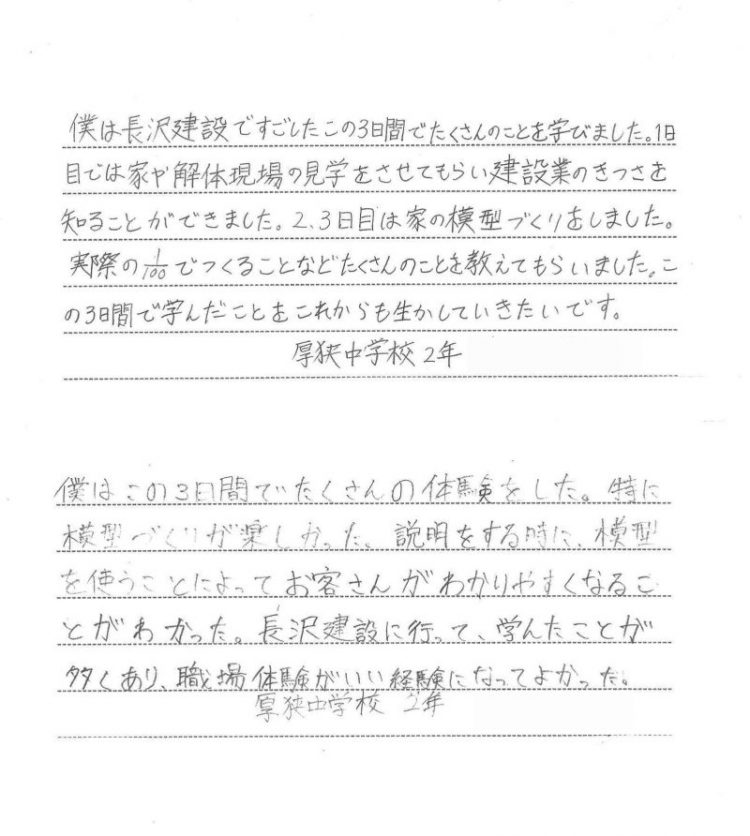 僕は長沢建設ですごしたこの3日間でたくさんのことを学びました。1日
目では家や解体現場の見学をさせてもらい建設業のきつさを
知ることができました。2、3日目は家の模型づくりをしました。
実際の1/100でつくることなどたくさんのことを教えてもらいました。こ
の3日間で学んだことをこれからも生かしていきたいです。
厚狭中学校2年
僕はこの3日間でたくさんの体験をした。特に
模型づくりが楽しかった。説明をする時に、模型
を使うことによってお客さんがわかりやすくなるこ
とがわかった。長沢建設に行って、学んたことが
多くあり、職場体験がいい経験になってよかった。
厚狭中学校 2年